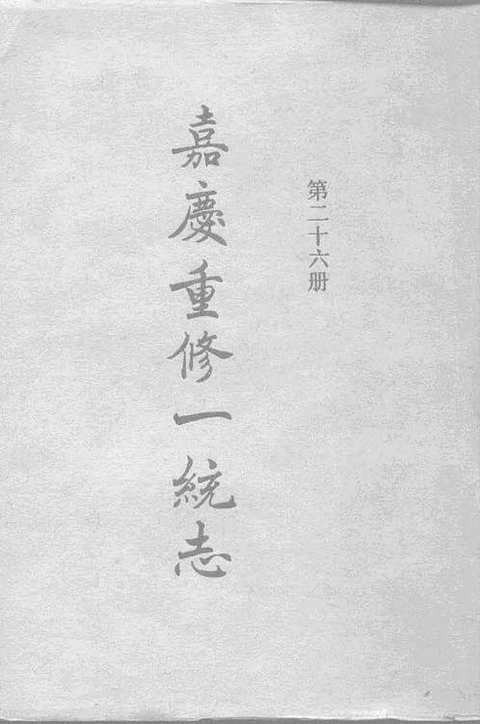 第二十六册
嘉慶重修一統志